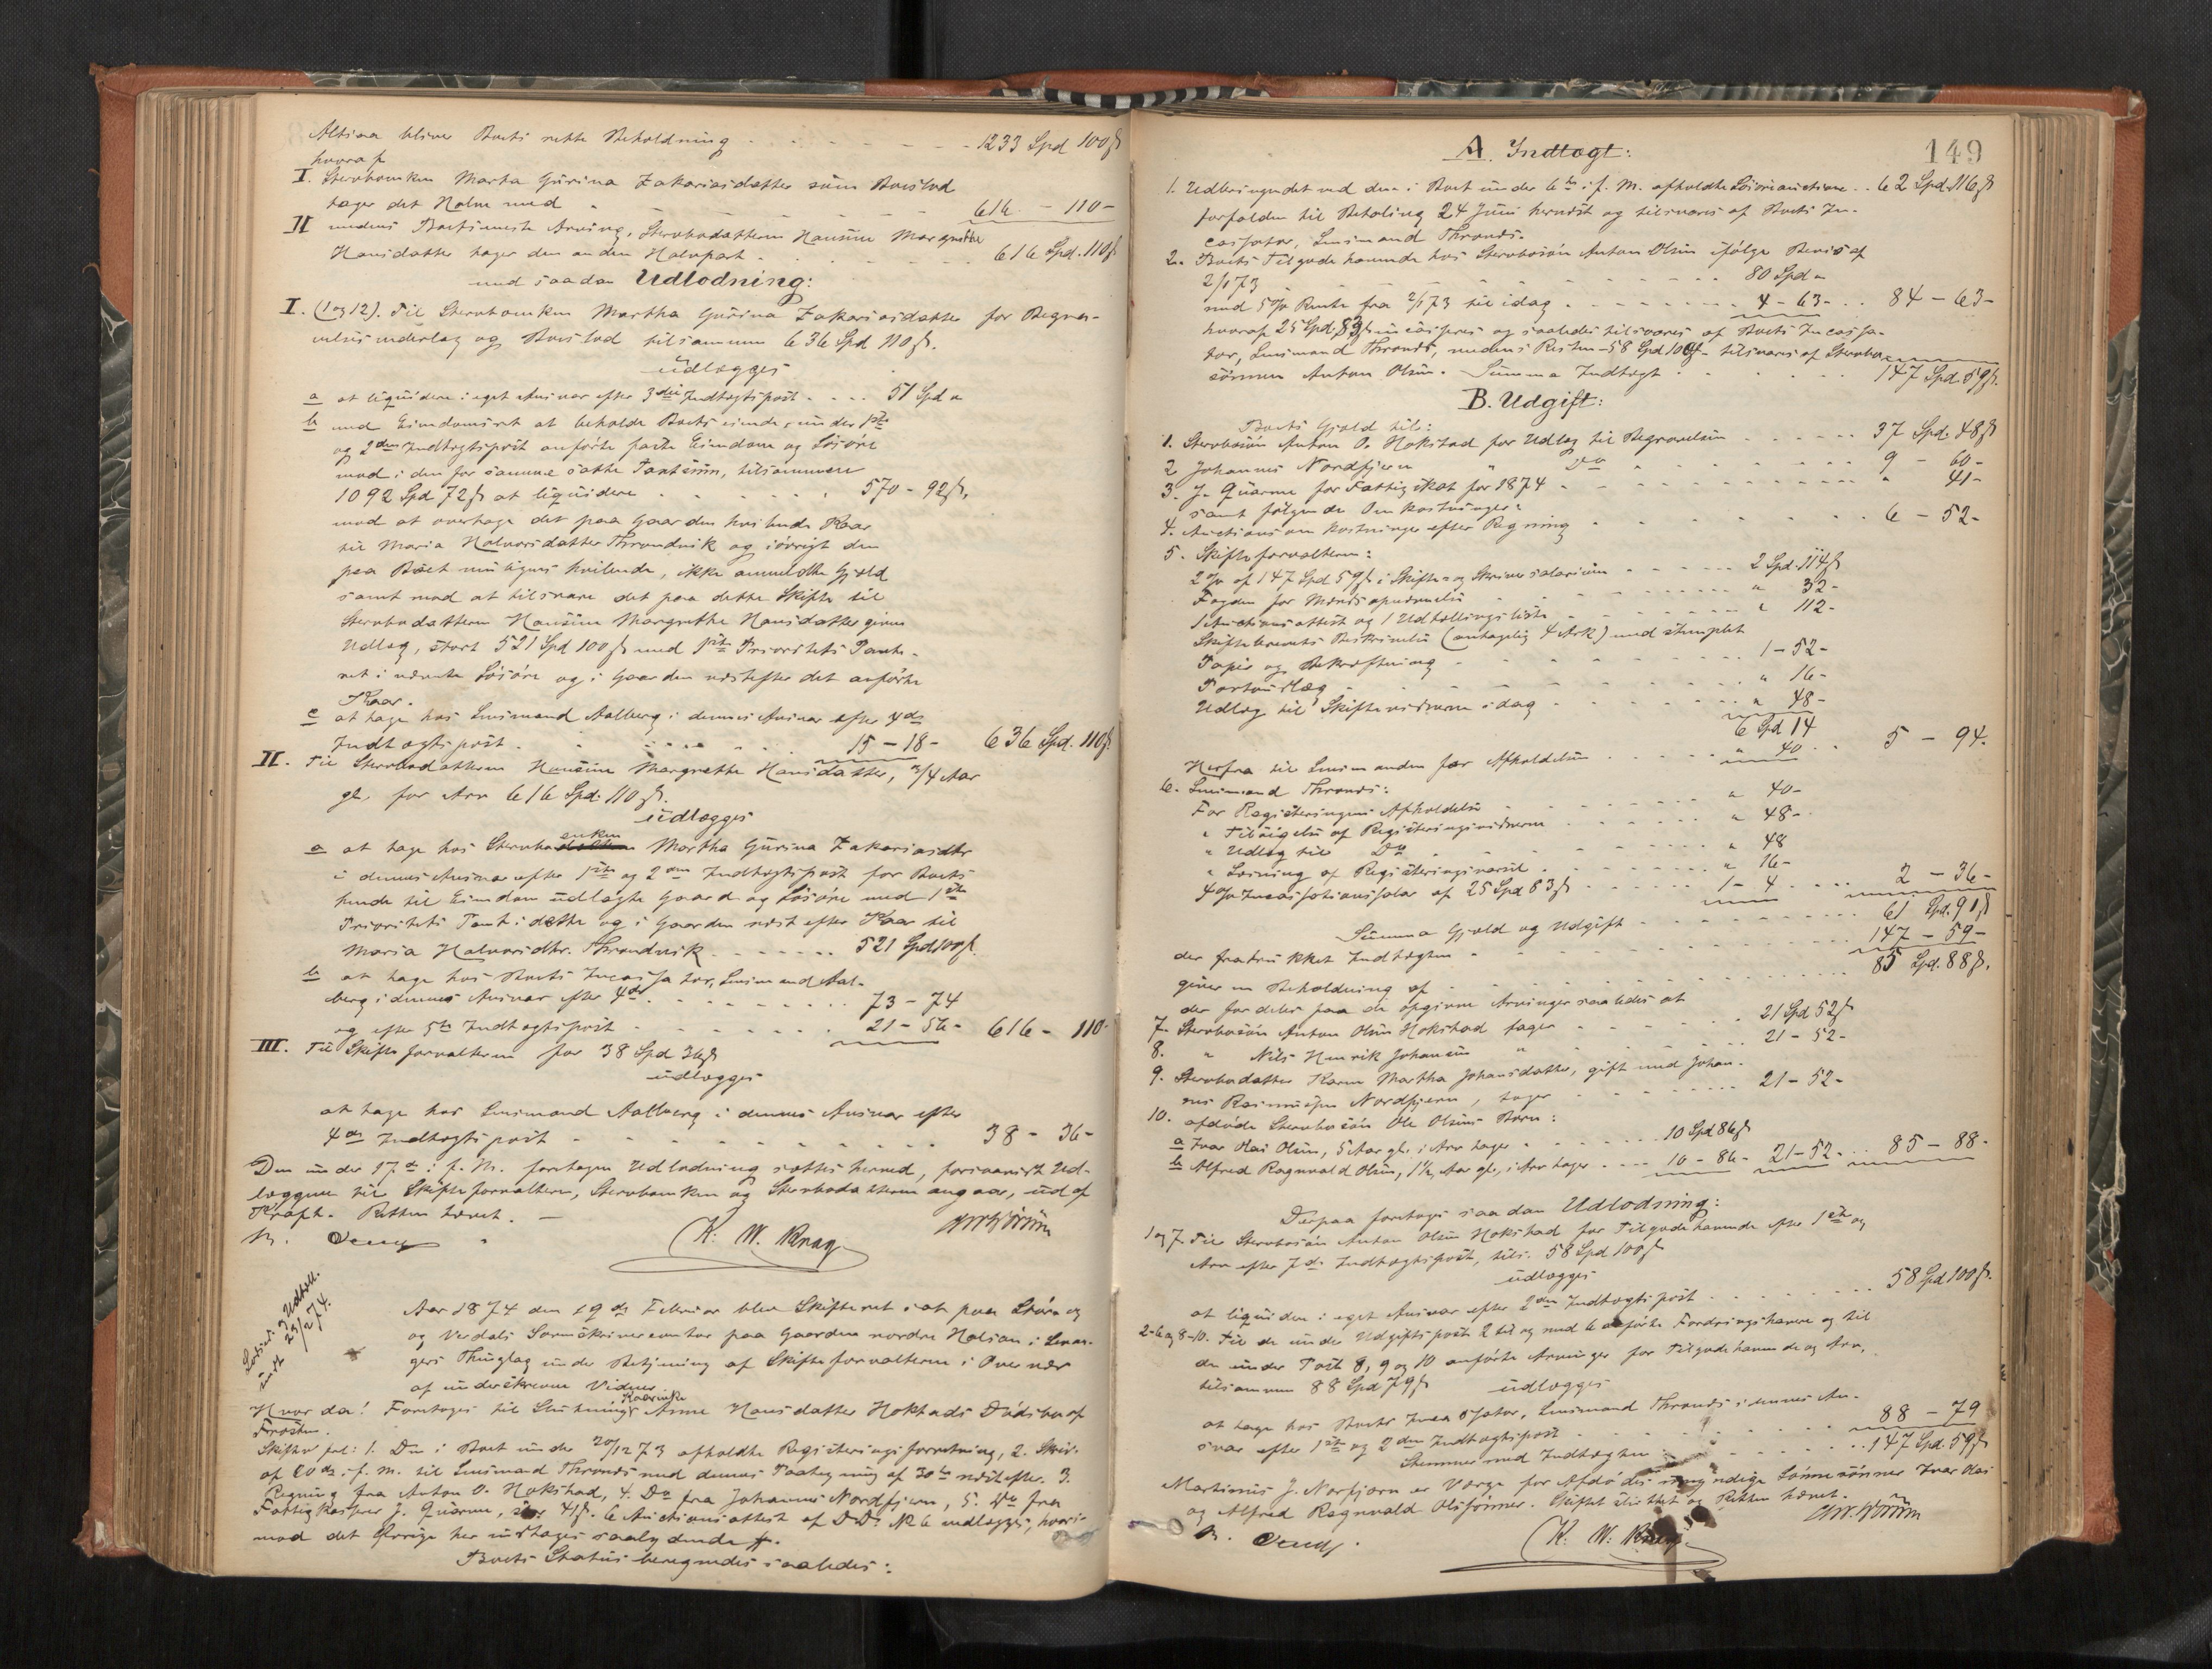 Altsaa bliver Boets rette Beholdning - - - 1233 Spd 100 ß
hvoraf
I. Sterboenken Marta Gurina Zakariasdatter som Boeslod
tager det Halve med - - - 616 - 110 -
II medens Boets eneste Arving, Sterbodatteren Hansine Margrethe
Hansdatter tager den anden Halvpart - - - 616 Spd. 110 ß
med saadan Udlodning:
I. (1 og 12). Til Sterboenken Martha Gurina Zakariasdatter for Begra-
velsesudlæg og Boeslod tilsammen 636 Spd 110 ß.
udlægges
a at liquidere i eget Ansvar efter 3die Indtægtspost - - - 51 Spd "
b med Eiendomsret at beholde Boets eiende, under 1ste
og 2den Indtægtspost anførte faste Eiendom og Løsøre
mod i den for samme satte Taxtsum, tilsammen
1092 Spd 72 ß at liquidere - - - 570 - 92 ß.
mod at overtage det paa Gaarden hvilende Kaar
til Maria Halvorsdatter Throndvik og iøvrigt den
paa Boet muligens hvilende, ikke anmeldte Gjæld
samt mod at tilsvare det paa dette Skifte til
Sterbodatteren Hansine Margrethe Hansdatter givne
Udlæg, stort 521 Spd 100 ß med 1ste Prioritets Pante-
ret i nævnte Løsøre og i Gaarden næstefter det anførte
Kaar.
c at tage hos Lensmand Aalberg i dennes Ansvar efter 4de
Indtægtspost - - - 15 - 18 - 636 Spd. 110 ß.
II. Til Sterbodatteren Hansine Margrethe Hansdatter, 3/4 Aar
gl., for Arv 616 Spd. 110 ß.
udlægges
a at tage hos Sterboenken Martha Gurina Zakariasdtr
i dennes Ansvar efter 1ste og 2den Indtægtspost for Boets
hende til Eiendom udlagte Gaard og Løsøre med 1ste
Prioritets Pant i dette og i Gaarden næst efter Kaar til
Maria Halvorsdtr. Throndvik - - - 521 Spd 100 ß.
b at tage hos Boets Incassator, Lensmand Aal-
berg i dennes Ansvar efter 4de - - - 73 - 74
og efter 5te Indtægtspost - - - 21 - 56 - 616 - 110 -
III. Til Skifteforvalteren for 38 Spd 36 ß
udlægges
at tage hos Lensmand Aalberg i dennes Ansvar efter
4de Indtægtspost - - - 38 - 36 -
Den under 17de i f. M. foretagne Udlodning sættes herved, forsaavidt Ud-
læggene til Skifteforvalteren, Sterboenken og Sterbodatteren angaar, ud af
Kraft. Retten hævet. -
K. W. Krag
Aar 1874 den 19de Februar blev Skifteret sat paa Stør- og
og Verdals Sorenskrivercontor paa Gaarden nordre Halsan i Levan-
gers Thinglag under Betjening af Skifteforvalteren i Overvær
af underskrevne Vidner
Hvor da! Foretoges til Slutning Anne Kaarinke Hansdatter Hokstads Dødsbo af
Frosten.
Skiftef. frl: 1. Den i Boet under 20/12 73 afholdte Registeringsforretning, 2. Skriv.
af 20de i f. M. til Lensmand Thronds med dennes Paategning af 30te næstefter. 3.
Regning fra Anton O. Hokstad, 4. Do fra Johannes Nordfjern, 5. Do fra
Fattigkasser J. Quarme, 41 ß. 6 Auctionsattest af D. D. No 6 vedlægges, hvori-
mod det Øvrige her indtages saalydende #.
Boets Status beregnedes saaledes:
149
A. Indtægt:
1. Udbringendet ved den i Boet under 6te i f. M. afholdte Løsøreauction - - 62 Spd. 116 ß
forfalden til Betaling 24 Juni herefter og tilsvares af Boets In-
cassator, Lensmand Thronds.
2. Boets Tilgodehavende hos Sterbosøn Anton Olsen ifølge Bevis af
2/1 73 - - - 80 Spd "
med 5% Rente fra 2/1 73 til idag - - - 4 - 63 - - - 84 - 63 -
hvoraf 25 Spd. 83 ß incasseres og saaledes tilsvares af Boets Incassa-
tor, Lensmand Thronds, medens Resten - 58 Spd 100 ß - tilsvares af Sterbo-
sønnen Anton Olsen. Summa Indtægt - - - 147 Spd. 59 ß.
B. Udgift:
Boets Gjæld til:
1. Sterbosøn Anton O. Hokstad for Udlæg til Begravelsen - - - 37 Spd. 48 ß
2 Johannes Nordfjern " Do - - - 9 - 60 -
3. J. Quarme for Fattigskat for 1874 - - - " 41 -
samt følgende Omkostninger:
4. Auctionsomkostninger efter Regning - - - 6 - 52 -
5. Skifteforvalteren:
2% af 147 Spd 59 ß i Skifte- og Skriversalarium - - - 2 Spd. 114 ß
Fogden for Mændsopnævnelse - - - " 32 -
1 Auctionsattest og 1 Udtællingsliste - - - " 112 -
Skiftebrevets Beskrivelse (antagelig 4 Ark) med stemplet
Papir og Bekræftning - - - 1 - 52 -
Portoudlæg - - - " 16 -
Udlæg til Skiftevidnerne idag - - - " 48 -
6 Spd 14
Herfra til Lensmanden for Afholdelsen - - - " 40 - - 5 - 94.
6. Lensmand Thronds:
For Registeringens Afholdelse - - - " 40 -
" Tilsigelse af Registeringsvidnerne - - - " 48 -
" Udlæg til Do - - - " 48
" Løsning af Registeringsvarsel - - - " 16 -
4% Incassationssalar af 25 Spd 83 ß - - - 1 - 4 - - - 2 - 36 -
Summa Gjæld og Udgift - - - 61 Spd. 91 ß
der fradrukket Indtægten - - - 147 - 59 -
giver en Beholdning af - - - 85 Spd. 88 ß.
der fordeles paa de opgivne Arvinger saaledes at
7. Sterbosøn Anton Olsen Hokstad tager - - - 21 Spd 52 ß
8. " Nils Henrik Johansen " - - - 21 - 52 -
9. Sterbodatter Karen Martha Johansdatter, gift med Johan-
nes Rasmussen Nordfjern, tager - - - 21 - 52 -
10. afdøde Sterbosøn Ole Olsens Børn:
a Ivar Olai Olsen, 5 Aar gl. i Arv tager - - - 10 Spd 86 ß
b Alfred Ragnvald Olsen, 1½ Aar gl., i Arv tager - - - 10 - 86 - 21 - 52 - - - 85 - 88 -
Derpaa foretoges saadan Udlodning:
1 og 7. Til Sterbosøn Anton Olsen Hokstad for Tilgodehavende efter 1ste og
Arv efter 7de Indtægtspost, tils. 58 Spd 100 ß
udlægges
at liquidere i eget Ansvar efter 2den Indtægtspost - - - 58 Spd 100 ß.
2-6 og 8-10. Til de under Udgiftspost 2 til og med 6 anførte Fordringshavere og til
de under Post 8, 9 og 10 anførte Arvinger for Tilgodehavende og Arv,
tilsammen 88 Spd 79 ß udlægges
at tage hos Boets Incassator, Lensmand Thronds i dennes An-
svar efter 1ste og 2den Indtægtspost - - - 88 - 79
Stemmer med Indtægten - - - 147 Spd. 59 ß
Martinus J. Norfjern er Værge for Afdødes umyndige Sønnesønner Ivar Olai
og Alfred Ragnvald Olssønner. Skiftet sluttet og Retten hævet.
K. W. Krag